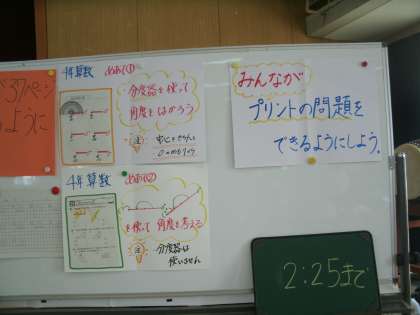 37ページ
ように
4年算数 めあて(1)
分度器を使って
角度をはかろう
中心をきちんと
4年算数 めあて(2)
を使って 角度を考える
分度器は
使いません
みんなが
プリントの問題を
できるようにしよう。
2:25まで